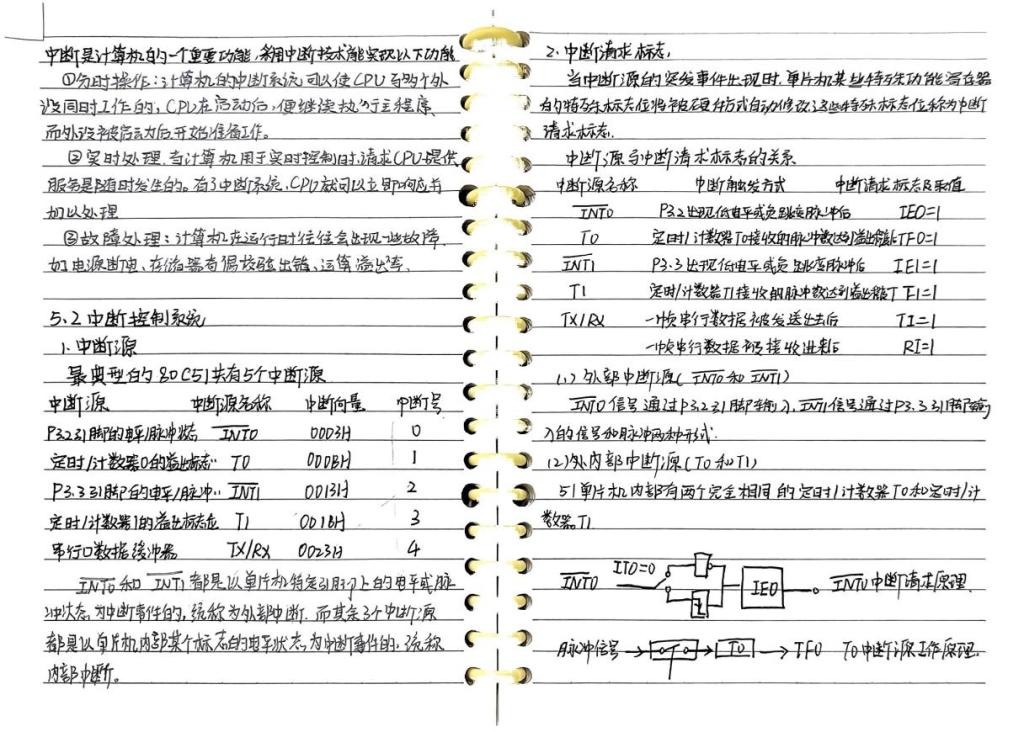 中断是计算机的一个重要功能,采用中断技术能实现以下功能
①分时操作:计算机的中断系统可以使CPU与多个外
设同时工作的,CPU在启动后,便继续执行主程序,
而外设被启动后,开始准备工作。
②实时处理,当计算机用于实时控制时,请求CPU提供
服务是随时发生的。有了中断系统,CPU就可以立即响应并
加以处理
③故障处理:计算机在运行时往往会出现一些故障,
如电源断电、存储器奇偶校验出错、运算溢出等.
5.2 中断控制系统
1.中断源
最典型的80C51共有5个中断源
中断源 中断源名称 中断向量 中断号
P3.2引脚的电平/脉冲状态 INT0 0003H 0
定时/计数器0的溢出标志 T0 000BH 1
P3.3引脚的电平/脉冲 INT1 0013H 2
定时/计数器1的溢出标志位 T1 001BH 3
串行口数据缓冲器 TX/RX 0023H 4
INT0 和 INT1 都是以单片机特定引脚上的电平或脉
冲状态为中断事件的,统称为外部中断.而其余3个中断源
都是以单片机内部某个标志的电平状态为中断事件的,统称
内部中断。
2.中断请求标志,
当中断源的突发事件出现时,单片机某些特殊功能寄存器
的特殊标志位将被硬件方式自动修改,这些特殊标志位称为中断
请求标志.
中断源与中断请求标志的关系
中断源名称 中断触发方式 中断请求标志及取值
INT0 P3.2出现低电平或负跳变脉冲后 IE0=1
T0 定时/计数器T0接收的脉冲数达到溢出值后 TF0=1
INT1 P3.3出现低电平或负跳变脉冲后 IE1=1
T1 定时/计数器T1接收的脉冲数达到溢出程 TF1=1
TX/RX 一帧串行数据被发送出去后 TI=1
一帧串行数据被接收进来后 RI=1
(1.)外部中断源(INT0 和 INT1)
INT0信号通过P3.2引脚输入,INT1信号通过P3.3引脚输
入的信号和脉冲两种形式.
(2)外内部中断源(T0和T1)
51单片机内部有两个完全相同的定时/计数器T0和定时/计
数器T1
INT0 IT0=0 1 IE0 INT0中断请求原理.
脉冲信号 T0 TF0 T0中断源工作原理.